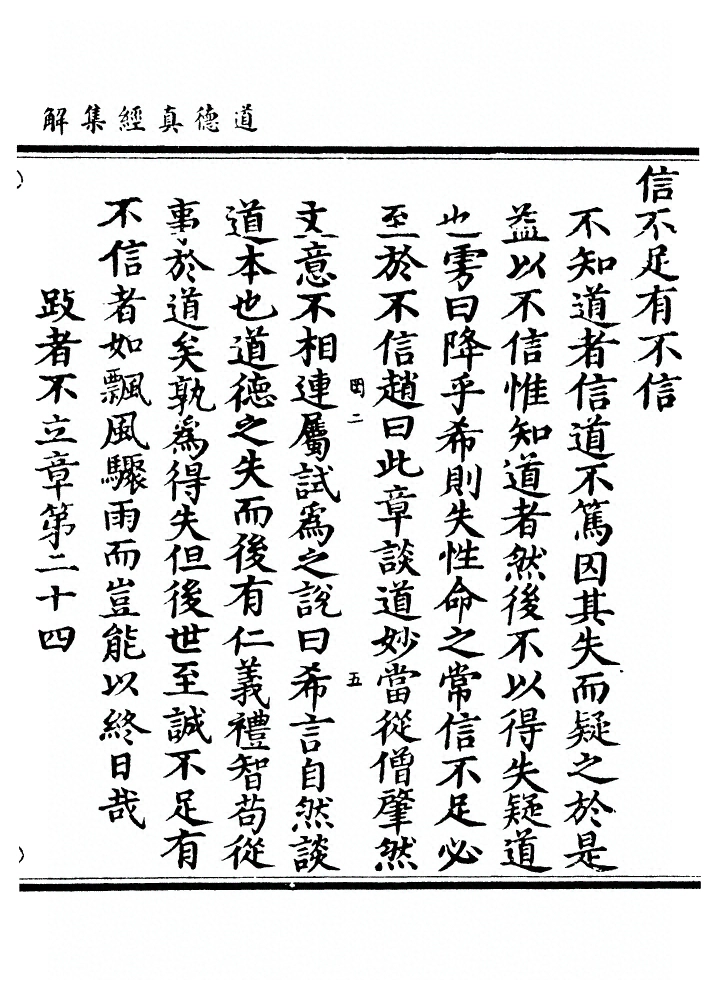 道德真經集解
信不足有不信
不知道者信道不篤因其失而疑之於是
益以不信惟知道者然後不以得失疑道
也雱曰降乎希則失性命之常信不足必
至於不信趙曰此章談道妙當從僧肇然
二
五
文意不相連屬試為之說曰希言自然談
道本也道德之失而後有仁義禮智苟從
事於道矣孰為得失但後世至誠不足有
不信者如飄風驟雨而豈能以終日哉
跂者不立章第二十四